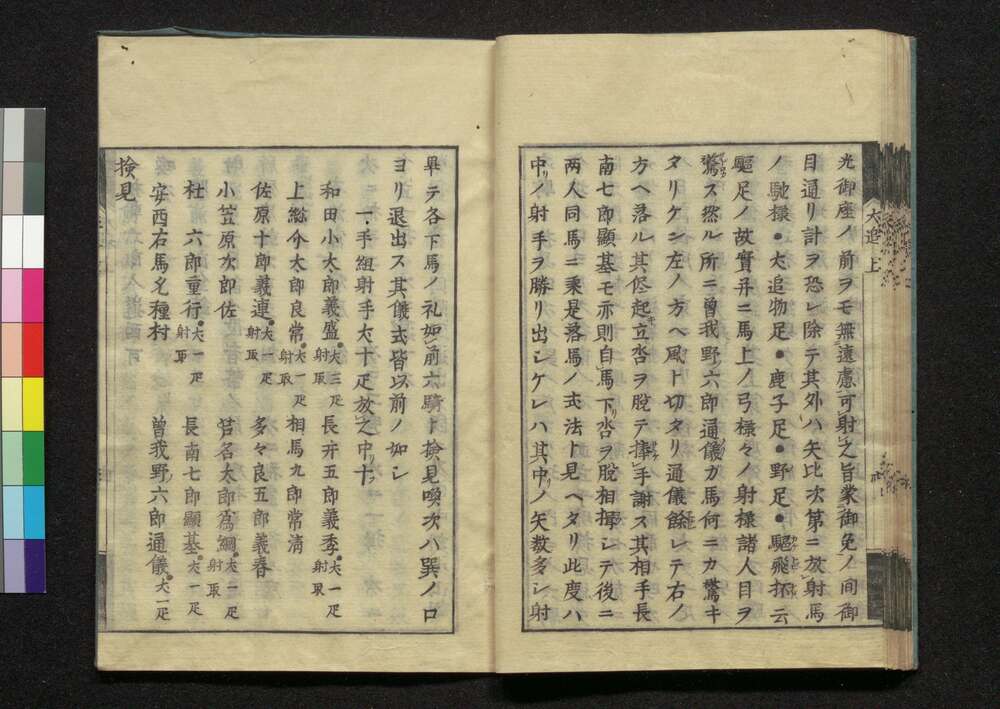 光御座ノ前ヲモ無遠慮可射之旨蒙御免ノ間御
目通リ計ヲ恐レ除テ其外ハ矢比次第ニ放射馬
ノ馳様・犬追物足・鹿子足・野足・驅飛拆云
驅足ノ故實幷ニ馬上ノ弓様々ノ射様諸人目ヲ
驚ス然ル所ニ曽我野六郎通儀カ馬何ニカ驚キ
タリケン左ノ方ヘ風ト切タリ通儀餘レテ右ノ
方ヘ落ル其侭起立沓ヲ脱テ捧手謝ス其相手長
南七郎顯基モ亦則自馬下リ沓ヲ脱相揖シテ後ニ
両人同馬ニ乗是落馬ノ法ト見ヘタリ此度ハ
中リノ射手ヲ勝リ出シケレハ其中リノ矢数多シ射
犬追 上
畢テ各下馬ノ礼如前六騎ト撿見喚次ハ巽ノ口
ヨリ退出ス其儀式皆以前ノ如シ
一手組射手犬十疋放之中リ十
和田小太郎義盛 犬三疋 射取 長井五郎義季 犬一疋 射取
上総介太郎良常 犬一疋 射取 相馬九郎常淸
佐原十郎義連 犬一疋 射取 多々良五郎義春
小笠原次郎佐 芦名太郎為綱 犬一疋 射取
杜六郎重行 犬一疋 射取 長南七郎顯基 犬一疋
安西右馬允種村 曽我野六郎通儀 犬一疋
撿見